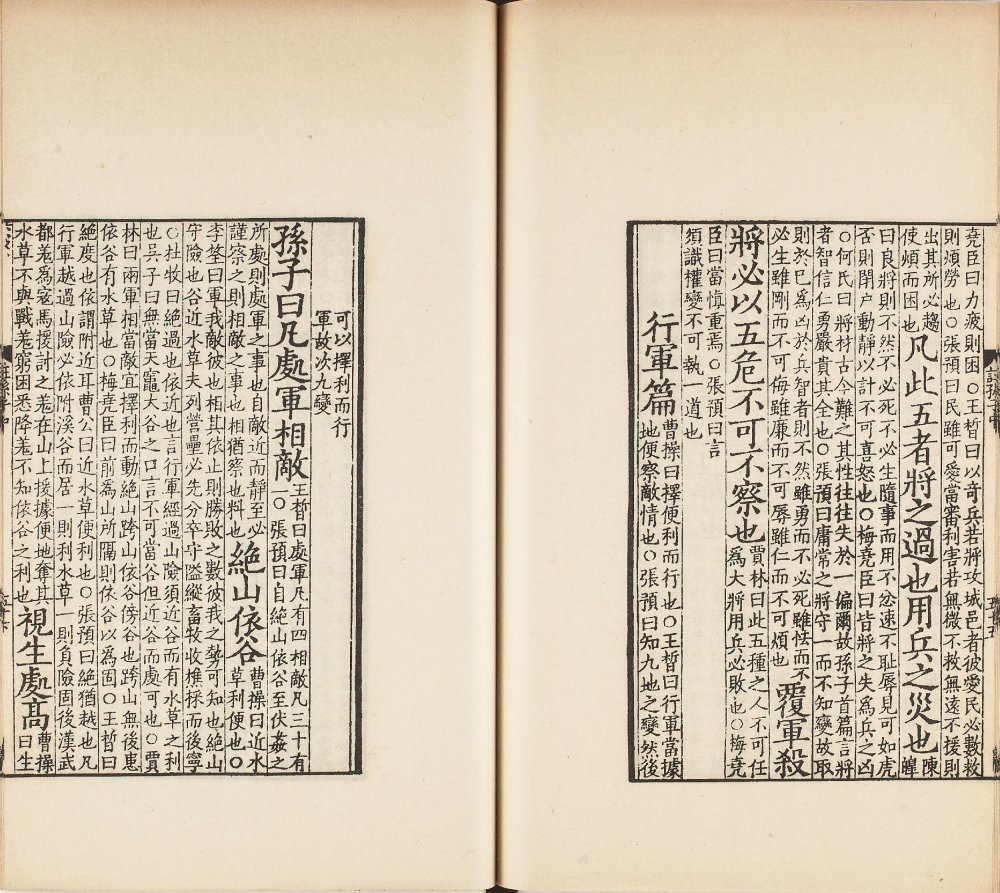 堯臣曰力疲則困〇王晳曰以奇兵若將攻城邑者彼愛民必數救
則煩勞也〇張預曰民雖可愛當審利害若無微不救無遠不援則
出其所必趨
使煩而困也
凡此五者將之過也用兵之災也
陳
皥
曰良將則不然不必死不必生隨事而用不忿速不恥辱見可如虎
否則閉户動靜以計不可喜怒也〇梅堯臣曰皆將之失爲兵之凶
〇何氏曰將材古今難之其性往往失於一偏爾故孫子首篇言將
者智信仁勇嚴貴其全也〇張預曰庸常之將守一而不知變故取
則於己爲凶於兵智者則不然雖勇而不必死雖怯而不
必生雖剛而不可侮雖廉而不可辱雖仁而不可煩也
覆軍殺
將必以五危不可不察也
賈林曰此五種之人不可任
爲大將用兵必敗也〇梅堯
臣曰當慎重焉〇張預曰言
須識權變不可執一道也
行軍篇
曹操曰擇便利而行也〇王晳曰行軍當據
地便察敵情也〇張預曰知九地之變然後
可以擇利而行
軍故次九變
孫子曰凡處軍相敵
王晳曰處軍凡有四相敵凡三十有
一〇張預曰自絕山依谷至伏姦之
所處則處軍之事也自敵近而靜至必
謹察之則相敵之事也相猶察也料也〇
絕山依谷
曹操曰近水
草利便也〇
李筌曰軍我敵彼也相其依止則勝敗之數彼我之勢可知也絕山
守險也谷近水草夫列營壘必先分卒守隘縱畜牧收樵採而後寧
〇杜牧曰絕過也依近也言行軍經過山險須近谷而有水草之利
也吳子曰無當天竈大谷之口言不可當谷但近谷而處可也〇賈
林曰兩軍相當敵宜擇利而動絕山跨山依谷傍谷也跨山無後患
依谷有水草也〇梅堯臣曰前爲山所隔則依谷以爲固〇王晳曰
絕度也依謂附近耳曹公曰近水草便利也〇張預曰絕猶越也凡
行軍越過山險必依附溪谷而居一則利水草一則負險固後漢武
都羌爲寇馬援討之羌在山上援據便地奪其
水草不與戰羌窮困悉降羌不知依谷之利也
視生處高
曹操
曰生